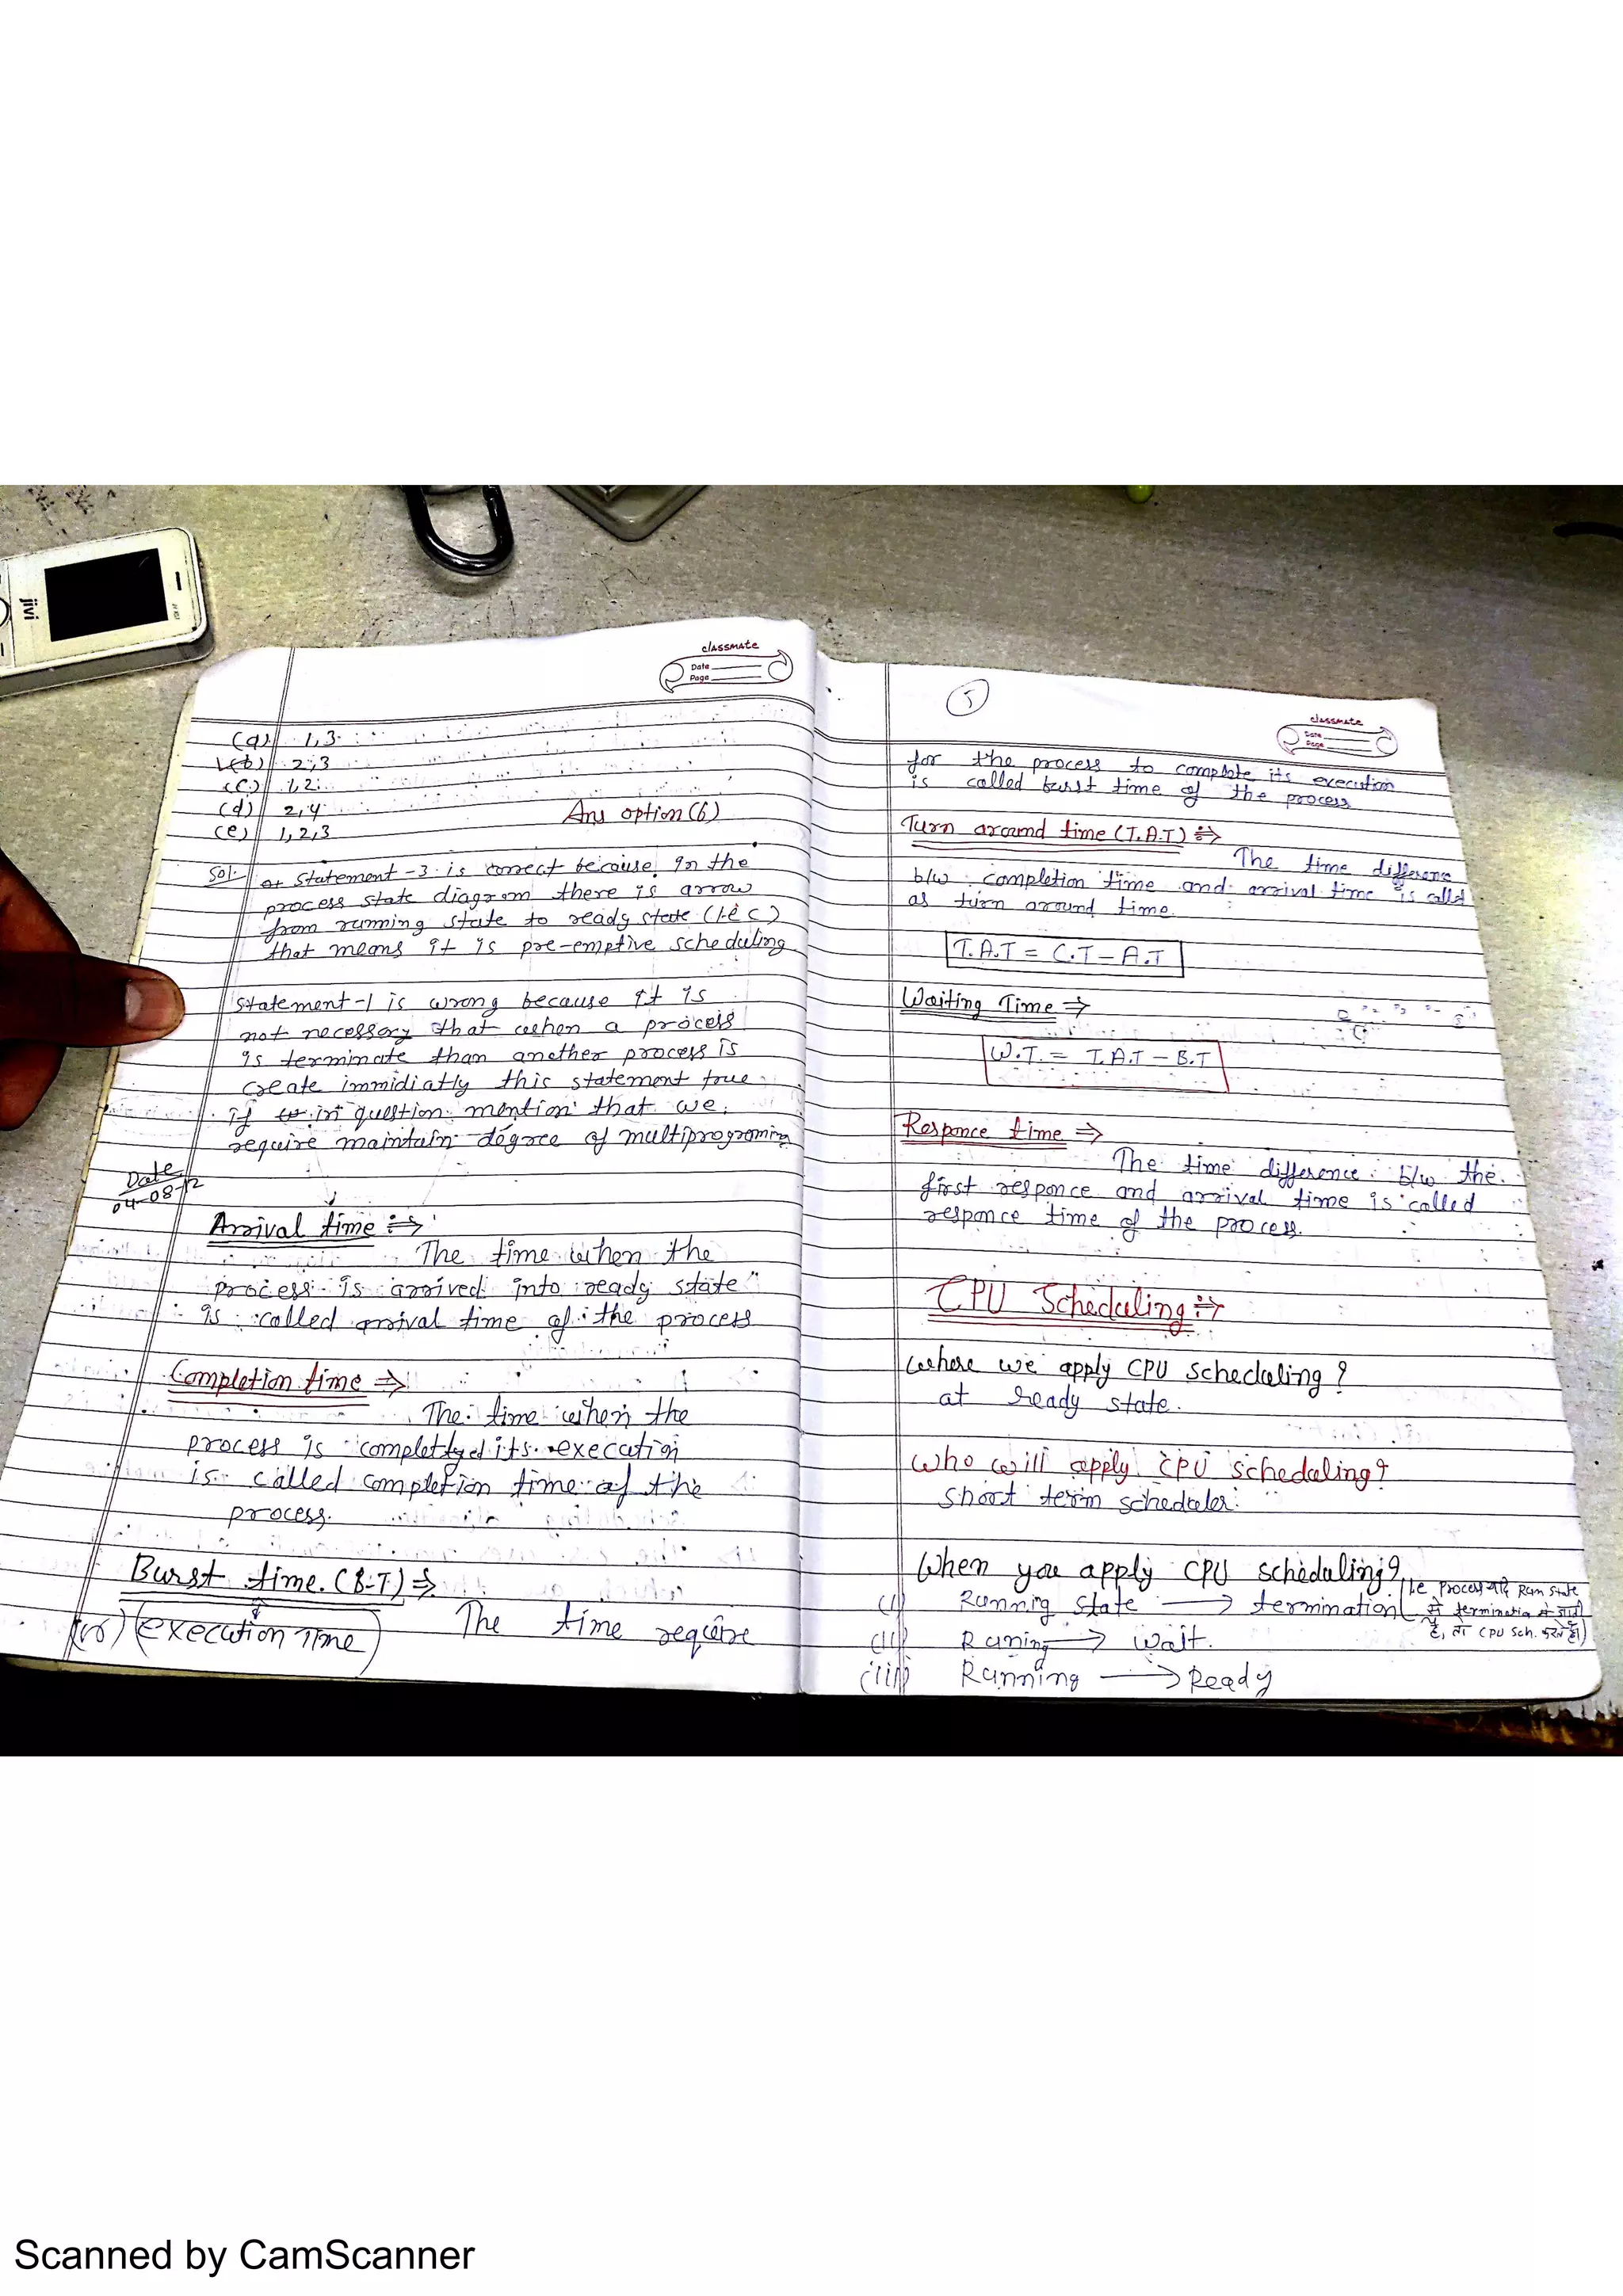 jivi
classmate
Date
Page
(a) 1,3
(b) 2,3
(c) 1,2
(d) 2,4
(e) 1,2,3
Ans option (b)
Sol. Statement-3 is correct because in the
process state diagram there is arrow
from running state to ready state (i.e c)
that means it is pre-emptive scheduling
Statement-1 is wrong because it is
not necessary that when a process
is terminate than another process is
create immidiatly this statement true
if in question mention that we
require maintain degree of multiprograming
Date
04-08-12
Arrival time ⇒
The time when the
process is arrived into ready state
is called arrival time of the process
Completion time ⇒
The time when the
process is its execution
is called completion time of the
process.
Burst time. (B.T) ⇒
(or) (execution Time) The time require
5
classmate
Date
Page
for the process to complete its execution
is called burst time of the process
Turn around time (T.A.T) ⇒
The time difference
b/w completion time and arrival time is called
as turn around time.
T.A.T = C.T – A.T
Waiting Time ⇒
W.T. = T.A.T – B.T
Responce time ⇒
The time difference b/w the
first responce and arrival time is called
responce time of the process.
CPU Scheduling ⇒
Where we apply CPU scheduling ?
at ready state.
Who will apply CPU scheduling ?
Short term scheduler.
When you apply CPU scheduling ?
(i) Running state → termination (i.e process यदि Run state
में termination में जाती
है, तो CPU Sch. करते हैं)
(ii) Runing → wait.
(iii) Running → Ready
Scanned by CamScanner